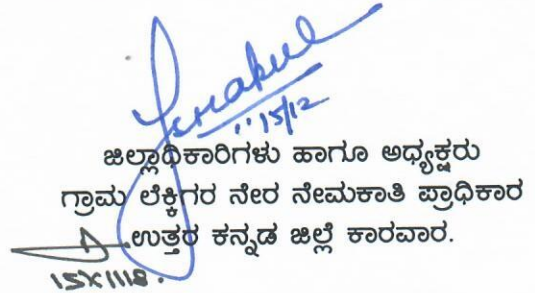 15/12
ಜಿಲ್ಲಾಧಿಕಾರಿಗಳು ಹಾಗೂ ಅಧ್ಯಕ್ಷರು
ಗ್ರಾಮ ಲೆಕ್ಕಿಗರ ನೇರ ನೇಮಕಾತಿ ಪ್ರಾಧಿಕಾರ
ಉತ್ತರ ಕನ್ನಡ ಜಿಲ್ಲೆ ಕಾರವಾರ.